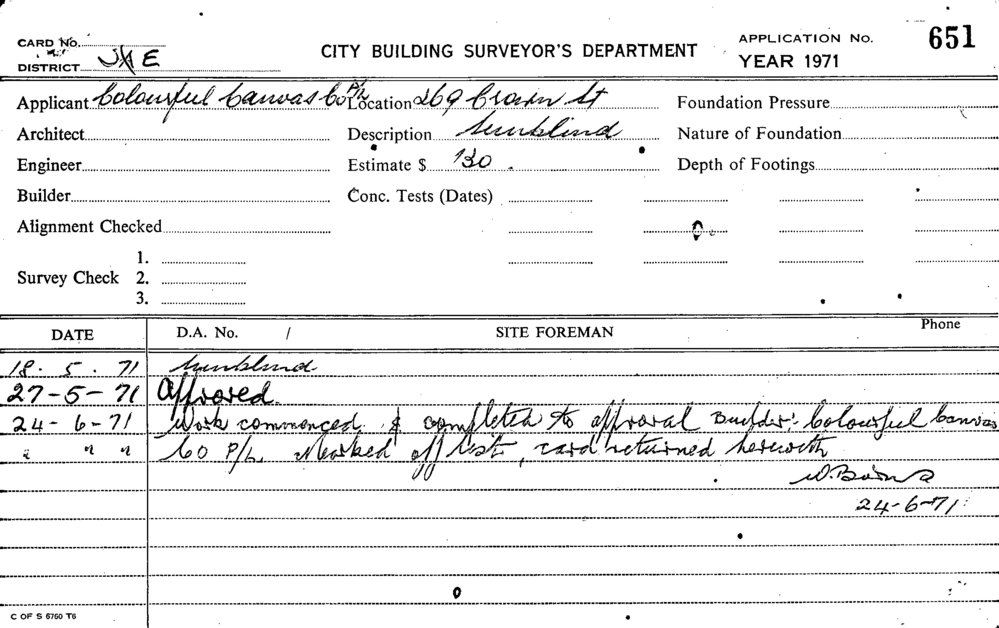 CARD No.
CITY BUILDING SURVEYOR'S DEPARTMENT
APPLICATION No. 651
DISTRICT E
YEAR 1971
Applicant Colourful Canvas Co P/L Location 269 Crown St Foundation Pressure
Architect Description Sunblind Nature of Foundation
Engineer Estimate $ 130. Depth of Footings
Builder Conc. Tests (Dates)
Alignment Checked
1.
Survey Check 2.
3.
DATE D.A. No. / SITE FOREMAN Phone
18. 5. 71 Sunblind
27-5-71 Approved.
24-6-71 Work commenced & completed to approval Builder: Colourful Canvas
" " " Co P/L. Marked off list, card returned herewith
24-6-71
C OF S 6760 T6